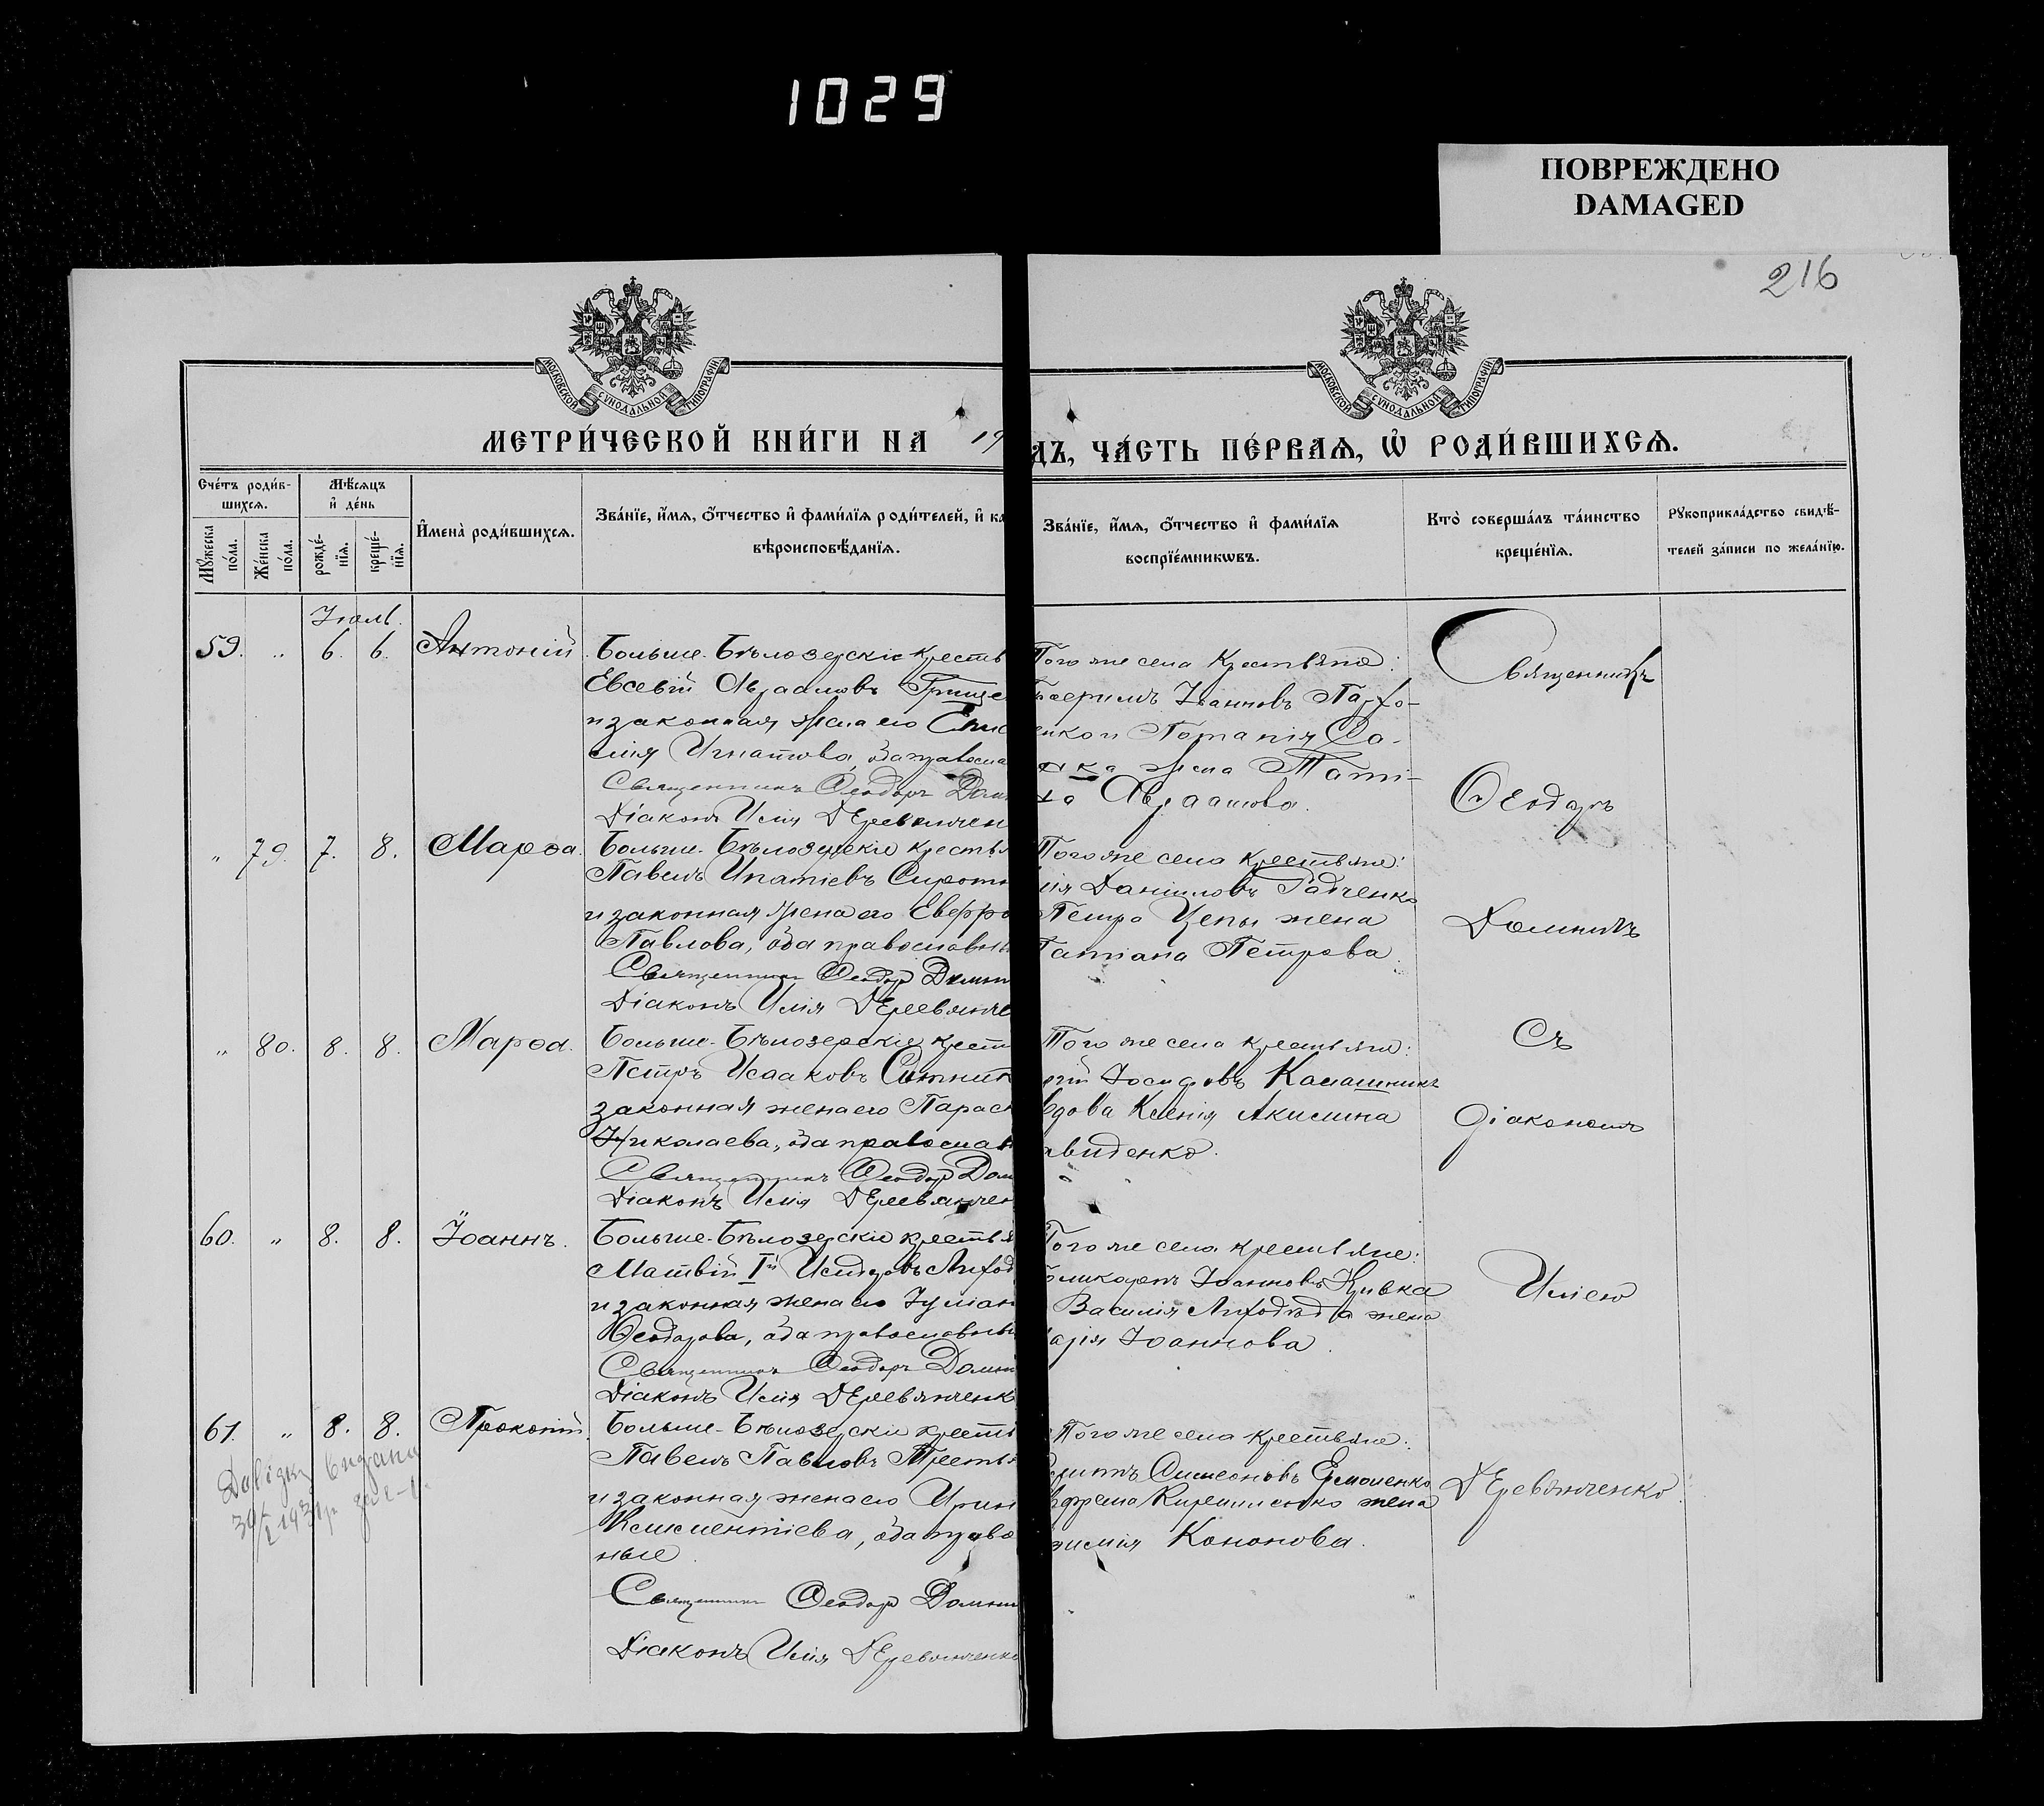 1029
ПОВРЕЖДЕНО
DAMAGED
216
МОСКОВСКОЙ СѴНОДАЛЬНОЙ ТИПОГРАФІИ
МОСКОВСКОЙ СѴНОДАЛЬНОЙ ТИПОГРАФІИ
МЕТРИ́ЧЕСКОЙ КНИ́ГИ НА 19
ДЪ, ЧА́СТЬ ПЕ́РВАѦ, Ѡ҆ РОДИ́ВШИХСѦ.
Сче́тъ роди́в-
шихсѧ.
Мꙋ́жеска по́ла.
Же́нска по́ла.
Мѣ́сѧцъ
и҆ де́нь
рожде́-
нїѧ.
креще́-
нїѧ.
И҆мена̀ роди́вшихсѧ.
Зва́нїе, и҆́мѧ, ѻ҆́тчество и҆ фами́лїѧ роди́телей, и҆ ка
вѣроисповѣ́данїѧ.
Зва́нїе, и҆́мѧ, ѻ҆́тчество и҆ фами́лїѧ
воспрїе́мникѡвъ.
Кто̀ соверша́лъ та́инство
креще́нїѧ.
Рꙋкоприкла́дство свидѣ́-
телей за́писи по жела́нїю.
Іюль.
59. „ 6. 6. Антоній
Больше-Бѣлозерскіе кресть
Евсевій Авраамовъ Грице
и законная жена его Епис
Игнатова, оба правосла
Священникъ Ѳеодоръ Дом
Діаконъ Илія Деревянчен
Того же села крестьяне:
Іоанновъ Пархо-
енко и
жена Тати-
на Авраамова.
„ 79. 7. 8. Марѳа.
Больше-Бѣлозерскіе крестья
Павелъ Ипатіевъ Сирот
и законная жена его Евфро
Павлова, оба православны
Священникъ Ѳеодоръ Домни
Діаконъ Илія Деревянче
Того же села крестьяне:
ія Даниловъ Радченко
Петра Цепы жена
Татіана Петрова.
„ 80. 8. 8. Марѳа.
Больше-Бѣлозерскіе крест
Петръ Исааковъ Ситник
законная жена его Параск
Николаева, оба православ
Священникъ Ѳеодоръ Дом
Діаконъ Илія Деревянчен
Того же села крестьяне:
ргій Іосифовъ Калашникъ
вдова Ксенія Акимина
авиденко.
60. „ 8. 8. Іоаннъ.
Больше-Бѣлозерскіе крестья
Матвій Iй Исидоровъ Лиход
и законная жена его Іуліан
Ѳеодорова, оба православны
Священникъ Ѳеодоръ Домни
Діаконъ Илія Деревянченк
Того же села крестьяне:
оликарпъ Іоанновъ Кривка
Василія Лиходѣда жена
арія Іоаннова.
61. „ 8. 8. Прокопій.
Больше-Бѣлозерскіе кресть
Павелъ Павловъ Третья
и законная жена его Ирин
Климентіева, оба право
ные.
Священникъ Ѳеодоръ Домни
Діаконъ Илія Деревянченко
Того же села крестьяне:
Симеоновъ Ермоленко
Ефрема Кириленко жена
Кононова.
Священникъ
Ѳеодоръ
Домникъ
Съ
діакономъ
Иліею
Деревянченко.
Довідку видано